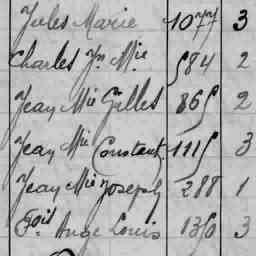 Jules Marie 1077 3
Charles Jn Mie 584 2
Jean Mie Gilles 865 2
Jean Mie Constant 1115 3
Jean Mie Joseph 288 1
Ange Louis 3